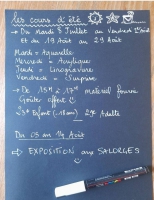 les cours d'été
→ Du Mardi 8 Juillet au Vendredi 1er Août
et du 19 Août au 29 Août
Mardi = Aquarelle
Mercredi = Acrylique
Jeudi = Linogravure
Vendredi = Surprise
→ De 15H à 17H matériel fourni
Goûter offert
Enfant (-18ans) Adulte
Du 05 au 14 Août
→ EXPOSITION aux SALORGES